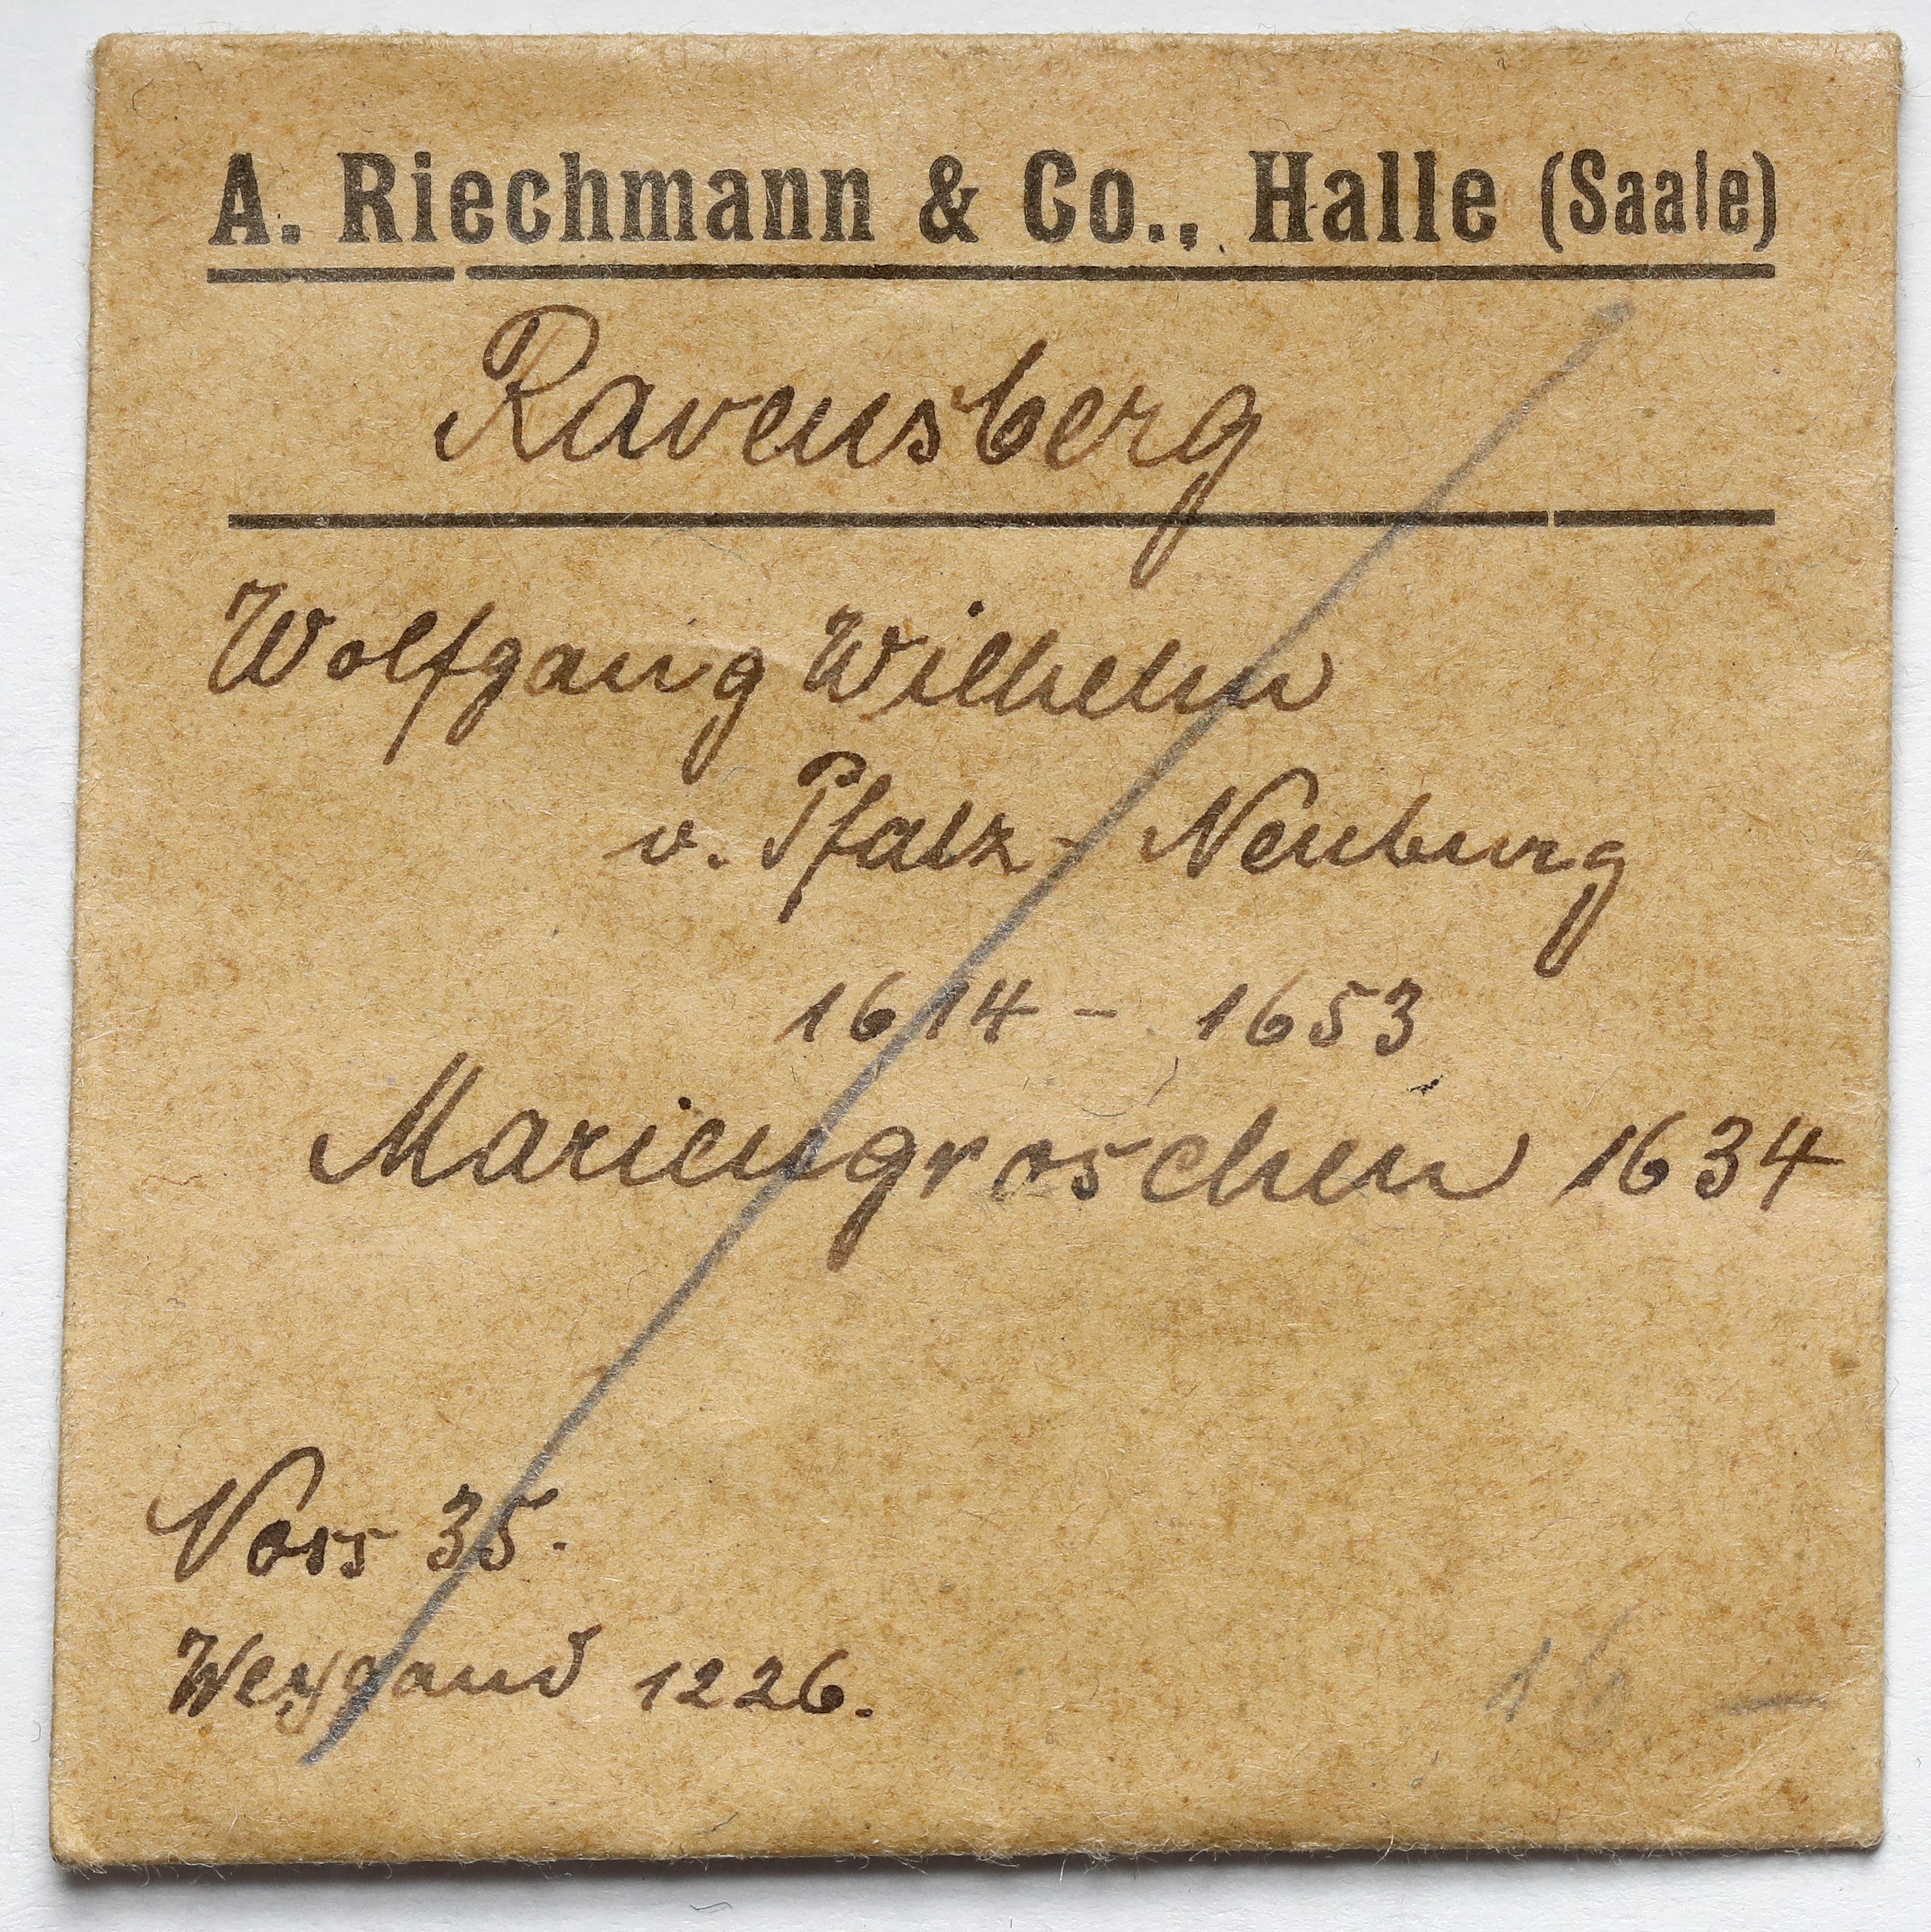 A. Riechmann & Co., Halle (Saale)
Ravensberg
Wolfgang Wilhelm
v. Pfalz - Neuburg
1614 - 1653
Mariengroschen 1634
Voss 35.
Weygand 1226.
16 -